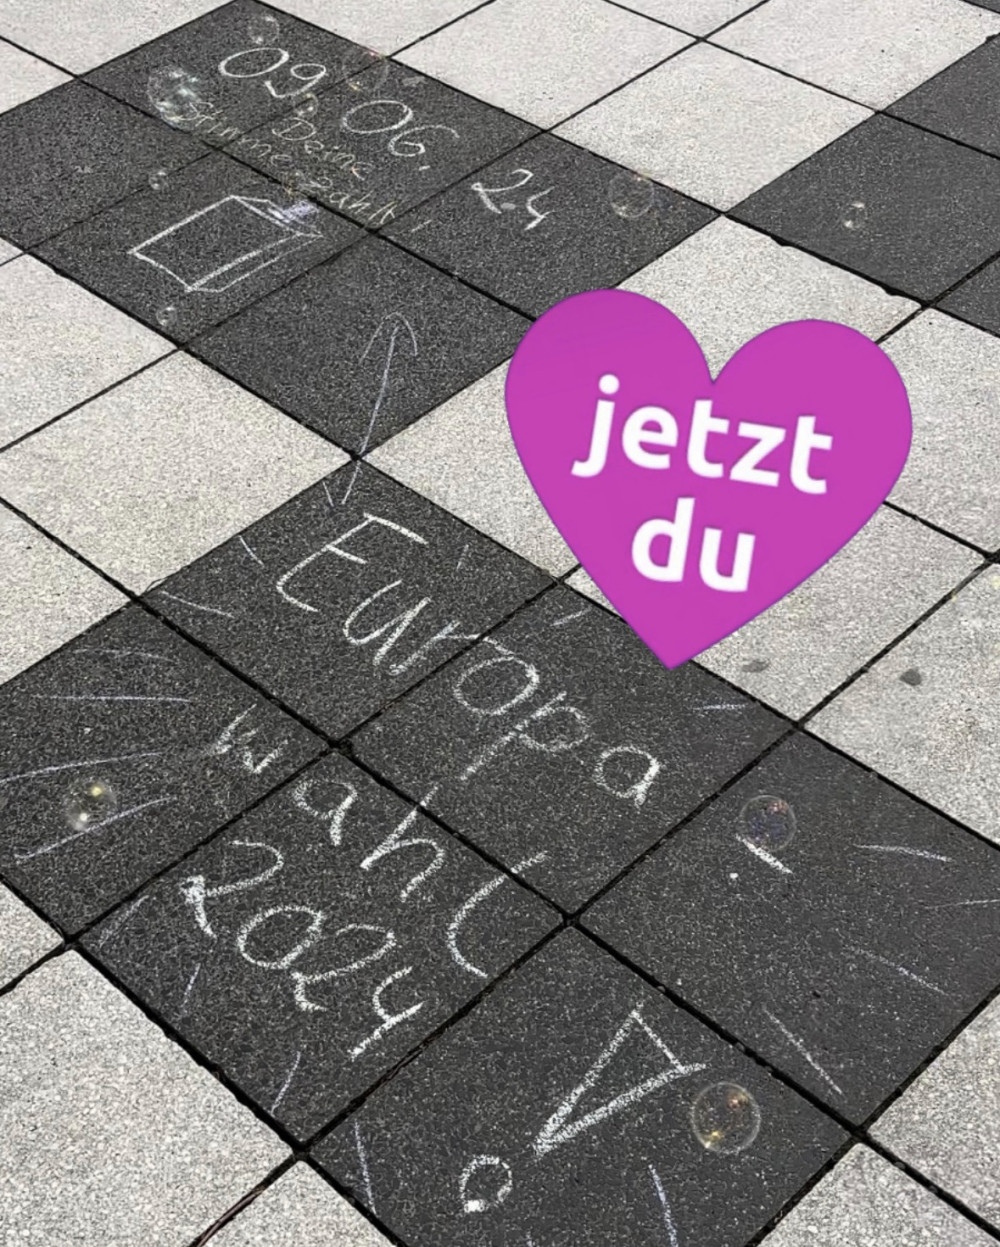 09.06.
24
Deine
Stimme zählt!
jetzt
du
Europa
wahl
2024
!